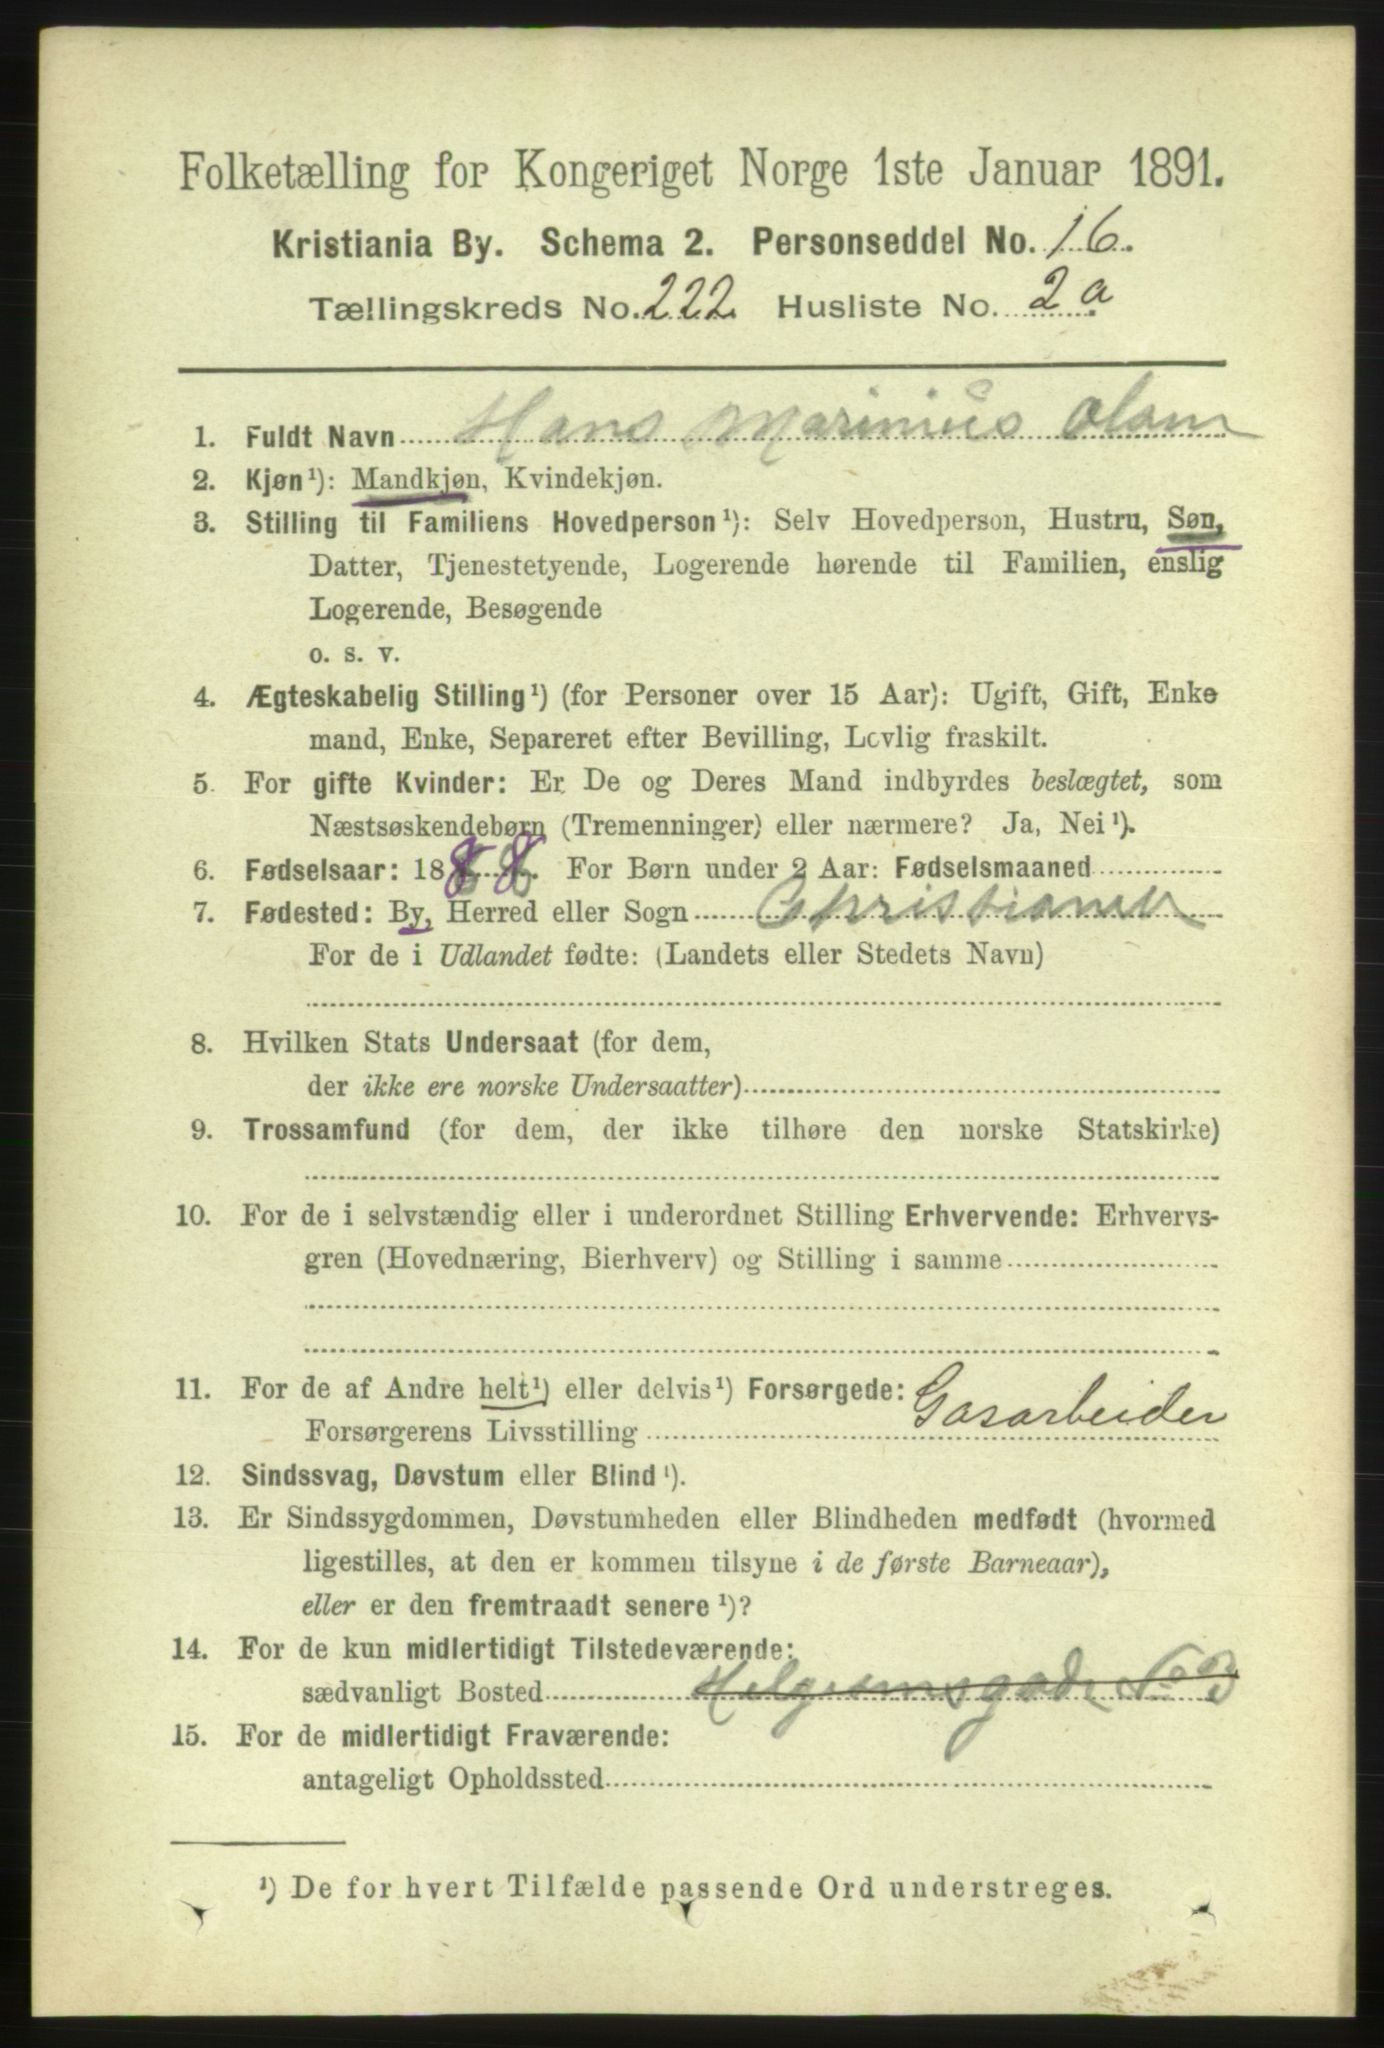 Folketælling for Kongeriget Norge 1ste Januar 1891.
Kristiania By. Schema 2. Personseddel No. 16.
Tællingskreds No. 222. Husliste No. 2a
1. Fuldt Navn Hans Marinius Olsen
2. Kjøn¹): Mandkjøn, Kvindekjøn.
3. Stilling til Familiens Hovedperson¹): Selv Hovedperson, Hustru, Søn,
Datter, Tjenestetyende, Logerende hørende til Familien, enslig
Logerende, Besøgende
o. s. v.
4. Ægteskabelig Stilling¹) (for Personer over 15 Aar): Ugift, Gift, Enke
mand, Enke, Separeret efter Bevilling, Lovlig fraskilt.
5. For gifte Kvinder: Er De og Deres Mand indbyrdes beslægtet, som
Næstsøskendebørn (Tremenninger) eller nærmere? Ja, Nei¹).
6. Fødselsaar: 1888. For Børn under 2 Aar: Fødselsmaaned
7. Fødested: By, Herred eller Sogn Christiania
For de i Udlandet fødte: (Landets eller Stedets Navn)
8. Hvilken Stats Undersaat (for dem,
der ikke ere norske Undersaatter)
9. Trossamfund (for dem, der ikke tilhøre den norske Statskirke)
10. For de i selvstændig eller i underordnet Stilling Erhvervende: Erhvervs-
gren (Hovednæring, Bierhverv) og Stilling i samme
11. For de af Andre helt¹) eller delvis¹) Forsørgede:
Forsørgerens Livsstilling Gasarbeider
12. Sindssvag, Døvstum eller Blind¹).
13. Er Sindssygdommen, Døvstumheden eller Blindheden medfødt (hvormed
ligestilles, at den er kommen tilsyne i de første Barneaar),
eller er den fremtraadt senere¹)?
14. For de kun midlertidigt Tilstedeværende:
sædvanligt Bosted
15. For de midlertidigt Fraværende:
antageligt Opholdssted
¹) De for hvert Tilfælde passende Ord understreges.